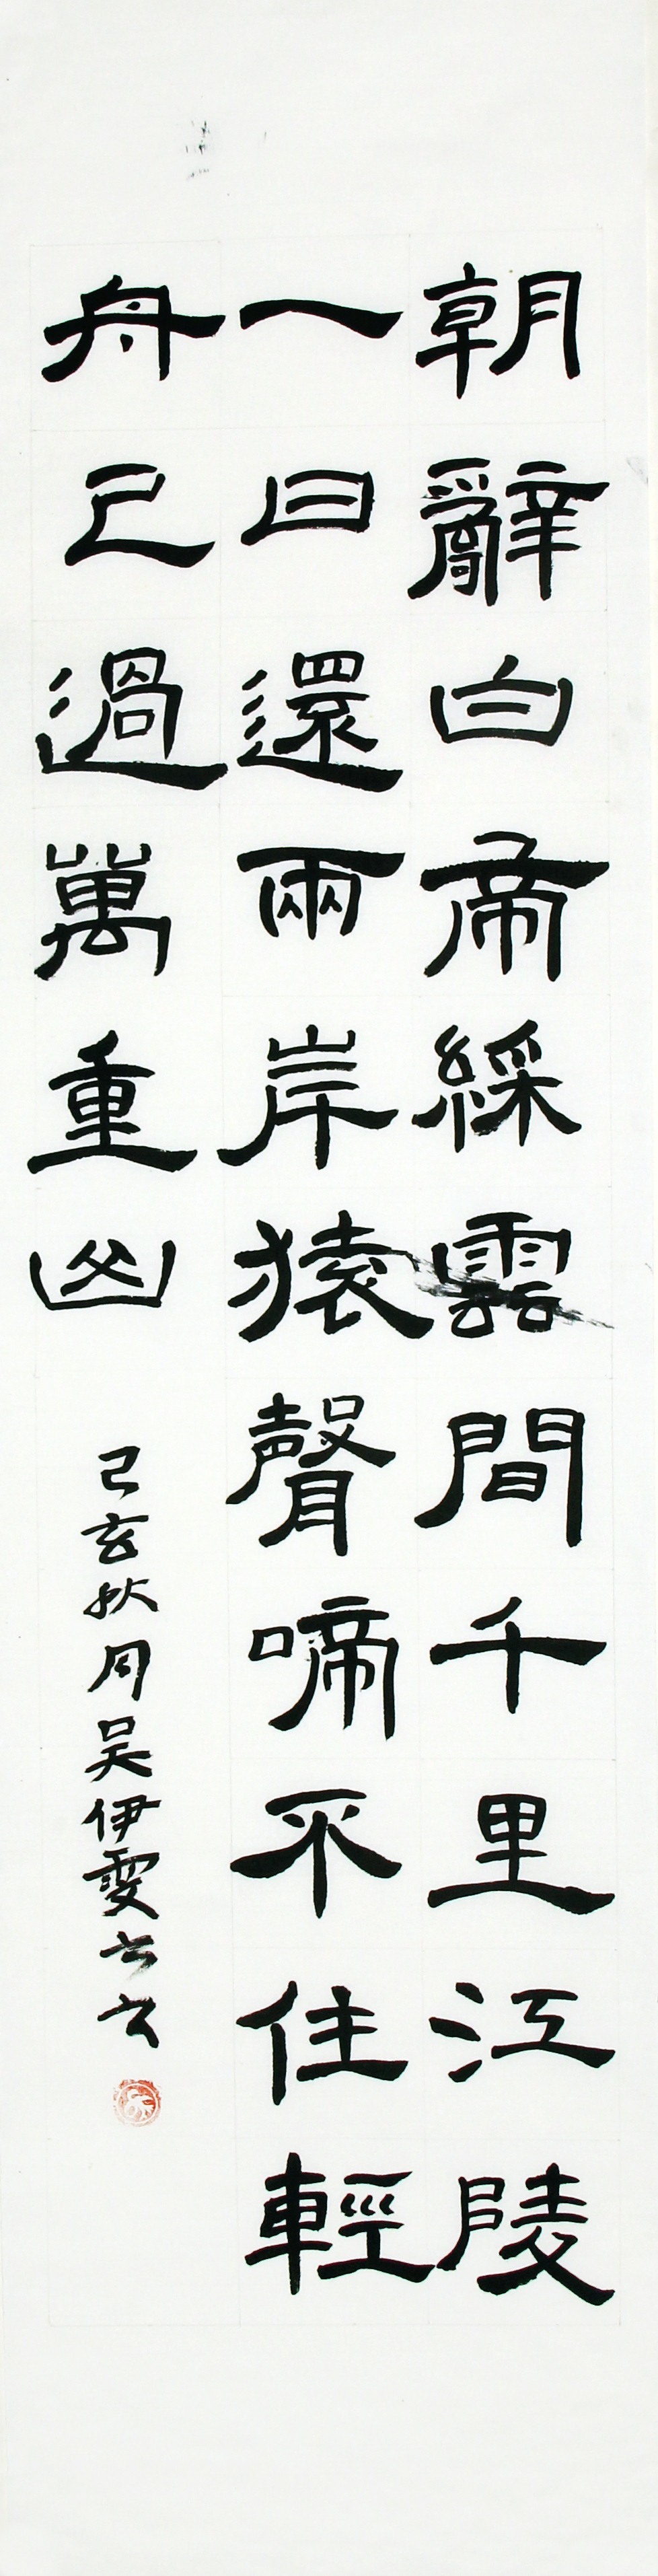 朝辭白帝綵雲間千里江陵
一日還兩岸猿聲啼不住輕
舟已過萬重山
己亥秋月吴伊雯